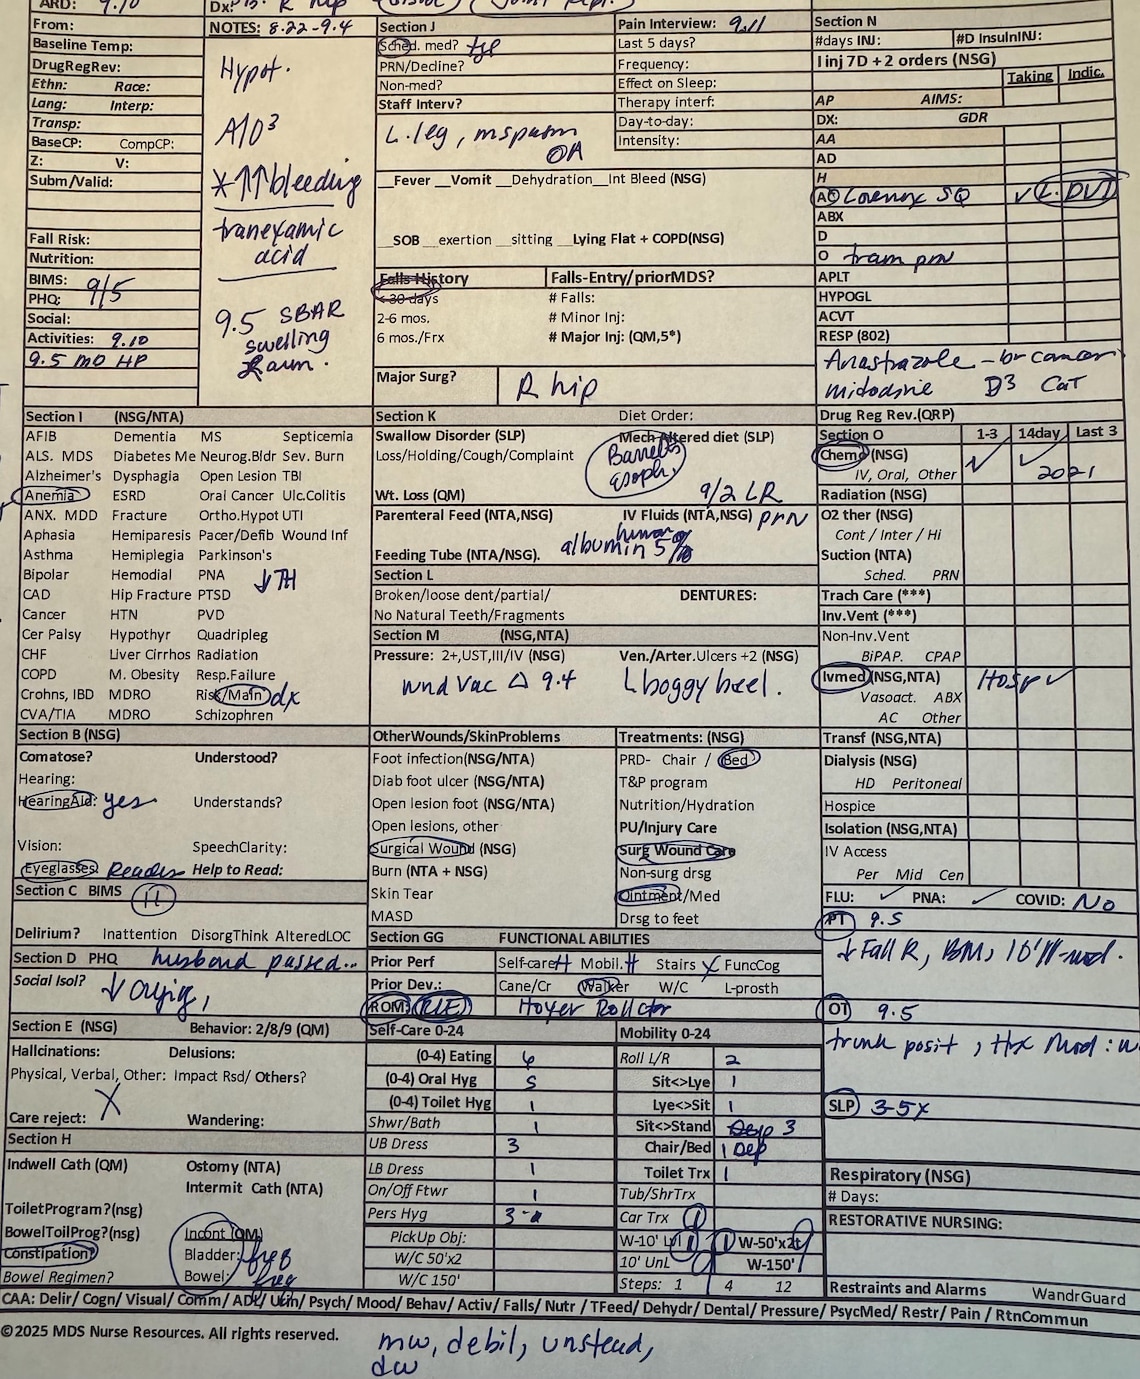 ARD: 9.10
Dx: R hip
From:
Baseline Temp:
DrugRegRev:
Ethn: Race:
Lang: Interp:
Transp:
BaseCP: CompCP:
Z: V:
Subm/Valid:
Fall Risk:
Nutrition:
BIMS: 9/5
PHQ:
Social:
Activities: 9.10
9.5 MD HP
NOTES: 8.22-9.4
Hypot.
A1O3
*↑↑bleeding
tranexamic
acid
9.5 SBAR
swelling
Section J
Sched. med? tyl
PRN/Decline?
Non-med?
Staff Interv?
L. leg, mspasm
OA
__Fever __Vomit __Dehydration__Int Bleed (NSG)
__SOB __exertion __sitting __Lying Flat + COPD(NSG)
Falls History Falls-Entry/priorMDS?
< 30 days # Falls:
2-6 mos. # Minor Inj:
6 mos./Frx # Major Inj: (QM,5*)
Major Surg? R hip
Pain Interview: 9.11
Last 5 days?
Frequency:
Effect on Sleep:
Therapy interf:
Day-to-day:
Intensity:
Section N
#days INJ: #D InsulnINJ:
I inj 7D + 2 orders (NSG)
Taking Indic.
AP AIMS:
DX: GDR
AA
AD
H
AC Lovenox SQ ✓ L. DVT
ABX
D
O tram prn
APLT
HYPOGL
ACVT
RESP (802)
Anastrazole - br cancer
midodrine D3 Cat
Section I (NSG/NTA)
AFIB Dementia MS Septicemia
ALS. MDS Diabetes Me Neurog.Bldr Sev. Burn
Alzheimer's Dysphagia Open Lesion TBI
Anemia ESRD Oral Cancer Ulc.Colitis
ANX. MDD Fracture Ortho.Hypot UTI
Aphasia Hemiparesis Pacer/Defib Wound Inf
Asthma Hemiplegia Parkinson's
Bipolar Hemodial PNA ↓TH
CAD Hip Fracture PTSD
Cancer HTN PVD
Cer Palsy Hypothyr Quadripleg
CHF Liver Cirrhos Radiation
COPD M. Obesity Resp.Failure
Crohns, IBD MDRO Risk/Main dx
CVA/TIA MDRO Schizophren
Section K Diet Order:
Swallow Disorder (SLP) Mech Altered diet (SLP)
Loss/Holding/Cough/Complaint Barretts
esoph.
Wt. Loss (QM) 9/2 LR
Parenteral Feed (NTA,NSG) IV Fluids (NTA,NSG) prn
human
Feeding Tube (NTA/NSG). albumin 5%
Section L
Broken/loose dent/partial/ DENTURES:
No Natural Teeth/Fragments
Section M (NSG,NTA)
Pressure: 2+,UST,III/IV (NSG) Ven./Arter.Ulcers +2 (NSG)
wnd vac Δ 9.4 L boggy heel.
Drug Reg Rev.(QRP)
Section O 1-3 14day Last 3
Chemo (NSG) ✓ ✓
IV, Oral, Other 2021
Radiation (NSG)
O2 ther (NSG)
Cont / Inter / Hi
Suction (NTA)
Sched. PRN
Trach Care (***)
Inv.Vent (***)
Non-Inv.Vent
BiPAP. CPAP
Ivmed (NSG,NTA) Hosp ✓
Vasoact. ABX
AC Other
Transf (NSG,NTA)
Dialysis (NSG)
HD Peritoneal
Hospice
Isolation (NSG,NTA)
IV Access
Per Mid Cen
FLU: ✓ PNA: ✓ COVID: No
Section B (NSG)
Comatose? Understood?
Hearing:
HearingAid: yes Understands?
Vision: SpeechClarity:
Eyeglasses: Reader Help to Read:
Section C BIMS 11
Delirium? Inattention DisorgThink AlteredLOC
Section D PHQ husband passed...
Social Isol? ↓
Section E (NSG) Behavior: 2/8/9 (QM)
Hallcinations: Delusions:
Physical, Verbal, Other: Impact Rsd/ Others?
X
Care reject: Wandering:
Section H
Indwell Cath (QM) Ostomy (NTA)
Intermit Cath (NTA)
ToiletProgram?(nsg)
BowelToilProg?(nsg) Incont (QM)
Constipation? Bladder: freq
Bowel Regimen? Bowel: freq
OtherWounds/SkinProblems
Foot infection(NSG/NTA)
Diab foot ulcer (NSG/NTA)
Open lesion foot (NSG/NTA)
Open lesions, other
Surgical Wound (NSG)
Burn (NTA + NSG)
Skin Tear
MASD
Treatments: (NSG)
PRD- Chair / Bed
T&P program
Nutrition/Hydration
PU/Injury Care
Surg Wound Care
Non-surg drsg
Ointment/Med
Drsg to feet
Section GG FUNCTIONAL ABILITIES
Prior Perf Self-care H Mobil. H Stairs X FuncCog
Prior Dev.: Cane/Cr Walker W/C L-prosth
ROM: RLE Hoyer Rollator
Self-Care 0-24
(0-4) Eating 6
(0-4) Oral Hyg 5
(0-4) Toilet Hyg 1
Shwr/Bath 1
UB Dress 3
LB Dress 1
On/Off Ftwr 1
Pers Hyg 3
PickUp Obj:
W/C 50'x2
W/C 150'
Mobility 0-24
Roll L/R 2
Sit<>Lye 1
Lye<>Sit 1
Sit<>Stand Dep 3
Chair/Bed 1 Dep
Toilet Trx 1
Tub/ShrTrx
Car Trx
W-10' Lvl W-50'x2t
10' UnL W-150'
Steps: 1 4 12
PT 9.5
↓ Fall R, BM, 10' //-mod.
OT 9.5
trunk posit
SLP 3-5x
Respiratory (NSG)
# Days:
RESTORATIVE NURSING:
Restraints and Alarms WandrGuard
CAA: Delir/ Cogn/ Visual/ Comm/ ADL/ Utin/ Psych/ Mood/ Behav/ Activ/ Falls/ Nutr / TFeed/ Dehydr/ Dental/ Pressure/ PsycMed/ Restr/ Pain / RtnCommun
©2025 MDS Nurse Resources. All rights reserved.
mw, debil, unstead,
dw